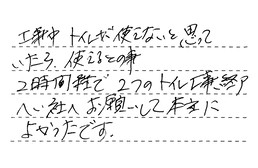 工事中 トイレが使えないと思って
いたら、使えるとの事
2時間程で 2つのトイレ工事終了
へい社へお願いして本当に
よかったです。